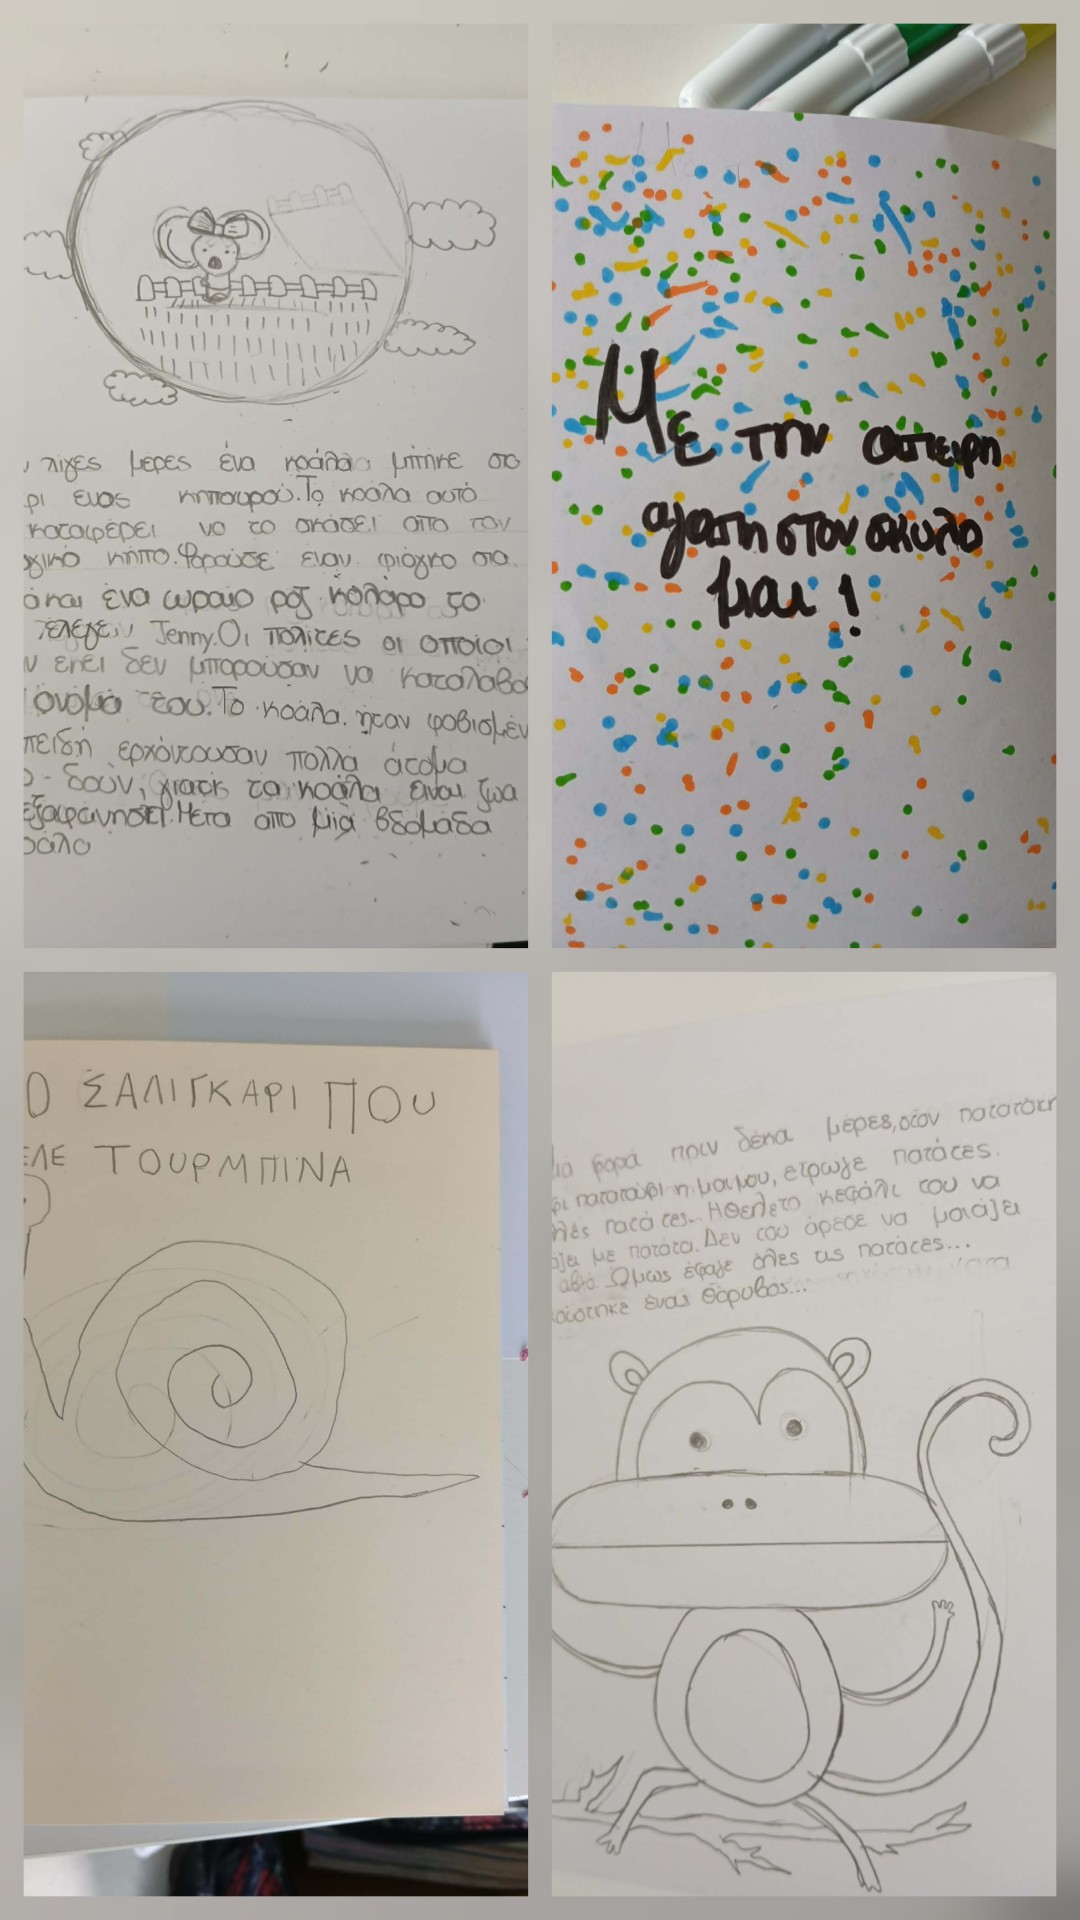 λίγες μέρες ένα κοάλα μπήκε στο
ρι ενος κηπουρού. Το κοάλα αυτό
καταφέρει να το σκάσει απο τον
γικό κήπο. Φορούσε έναν φιόγκο στα
ένα ωραίο ροζ κολάρο το
έλεγε, Jenny. Οι πολίτες οι οποίοι
ν εκεί δεν μπορούσαν να καταλάβο
όνομα του. Το κοάλα ήταν φοβισμέν
πειδή ερχόντουσαν πολλά άτομα
δούν, γιατι τα κοάλα είναι ζωα
Μετα απο μία βδομάδα
οάλα
Με την απειρη
αγαπη στον σκυλο
μου!
Ο ΣΑΛΙΓΚΑΡΙ ΠΟΥ
ΕΛΕ ΤΟΥΡΜΠΙΝΑ
ια φορά πριν δέκα μέρες, στον
η μαιμου, ετρωγε πατάτες.
λές πατάτες.. Ήθελε το κεφάλι του να
άζει με πατάτα. Δεν του άρεσε να μοιάζει
αβγό. Όμως έφαγε όλες τις πατάτες...
ούστηκε ένας θόρυβος...